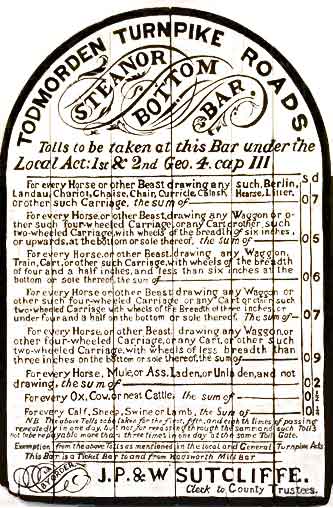 TODMORDEN TURNPIKE ROADS
STEANOR
BOTTOM
BAR.
Tolls to be taken at this Bar under the
Local Act: 1st & 2nd Geo. 4. cap III
S d
For every Horse or other Beast drawing any such, Berlin,
Landau, Chariot, Chaise, Chair, Curricle, Calash Hearse, Litter.
or other such Carriage, the sum of 0 7
For every Horse, or other Beast, drawing any Waggon or o-
ther such four wheeled Carriage, or any Cart or other such
two-wheeled Carriage, with wheels of the breadth of six inches,
or upwards, at the bottom or sole thereof, the sum of 0 5
For every Horse, or other Beast, drawing any Waggon,
Train, Cart, or other such Carriage, with wheels of the breadth
of four and a half inches, and less than six inches at the
bottom or sole thereof, the sum of 0 6
For every Horse or other Beast drawing any Waggon or
other such four wheeled Carriage or any Cart or other such
two-wheeled Carriage with wheels of the Breadth of three inches, or
under four and a half on the bottom or sole thereof. The sum of 0 7
For every Horse, or other Beast drawing any Waggon, or
other four-wheeled Carriage, or any Cart, or other such
two-wheeled Carriage, with wheels of less breadth than
three inches on the bottom or sole thereof, the sum of 0 9
For every Horse, Mule, or Ass, Laden, or Unladen, and not
drawing, the sum of 0 2
For every Ox, Cow, or neat Cattle, the sum of 0 ½
For every Calf, Sheep, Swine or Lamb, the Sum of 0 ¼
N.B. The above Tolls to be taken for the first, fifth, and eighth times of passing
repeatedly in one day, but not for repassing through the same and such Tolls
not to be repayable more than three times in one day at the same Toll Gate.
Exemption from the above Tolls as mentioned in the Local and General Turnpike Acts
This Bar is a Ticket Bar to and from Hogsworth Mill Bar
BY ORDER
J.P. & W SUTCLIFFE.
Clerk to County Trustees.